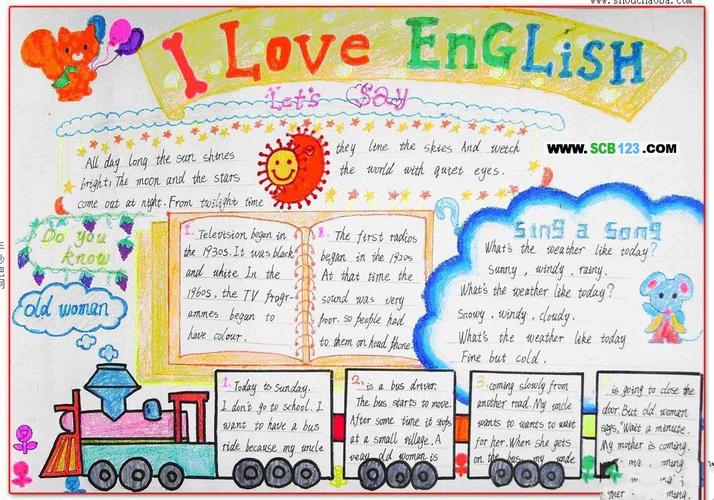 www.shouchaoba.com
I LOVE ENGLISH
Let's Say
WWW.SCB123.COM
All day long the sun shines
bright; The moon and the stars
come out at night. From twilight time
they line the skies And wetch
the world with quiet eyes.
Do you
know
old woman
1. Television began in
the 1930s. It was black
and white In the
1960s, the TV progr-
ammes began to
have colour.
The first radios
began in the 1920s
At that time the
sound was very
poor. so people had
to them on head phone
Sing a Song
What's the weather like today?
Sunny, windy, rainy.
What's the weather like today?
Snowy, windy, cloudy.
What's the weather like today
Fine but cold.
1. Today ts sunday.
I don't go to school. I
want to have a bus
ride because my uncle
2. is a bus driver.
The bus starts to move.
After some time it stops
at a small village. A
veay old woman is
3. coming slowly from
another road. My uncle
wants to wants to wait
for her. When she gets
on the bus, my unde
is going to close the
door. But old women
says, "Wait a minute.
My mother is coming.